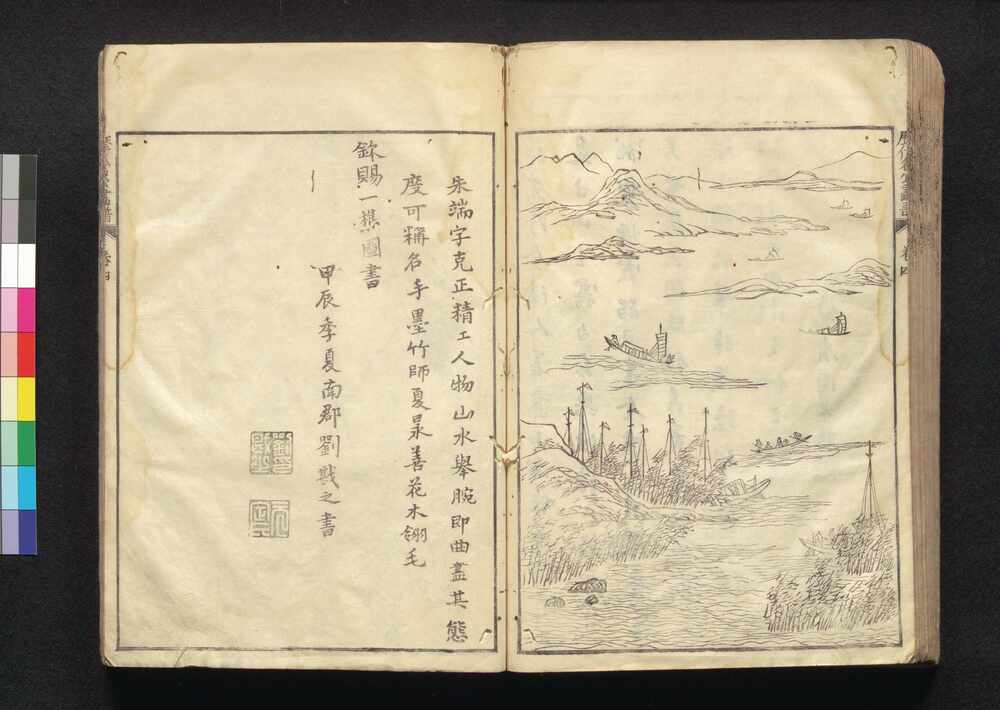 朱端字克正精工人物山水舉腕即曲盡其態
度可稱名手墨竹師夏㫤善花木翎毛
欽賜一樵圖書
甲辰季夏南郡劉戡之書
卷四